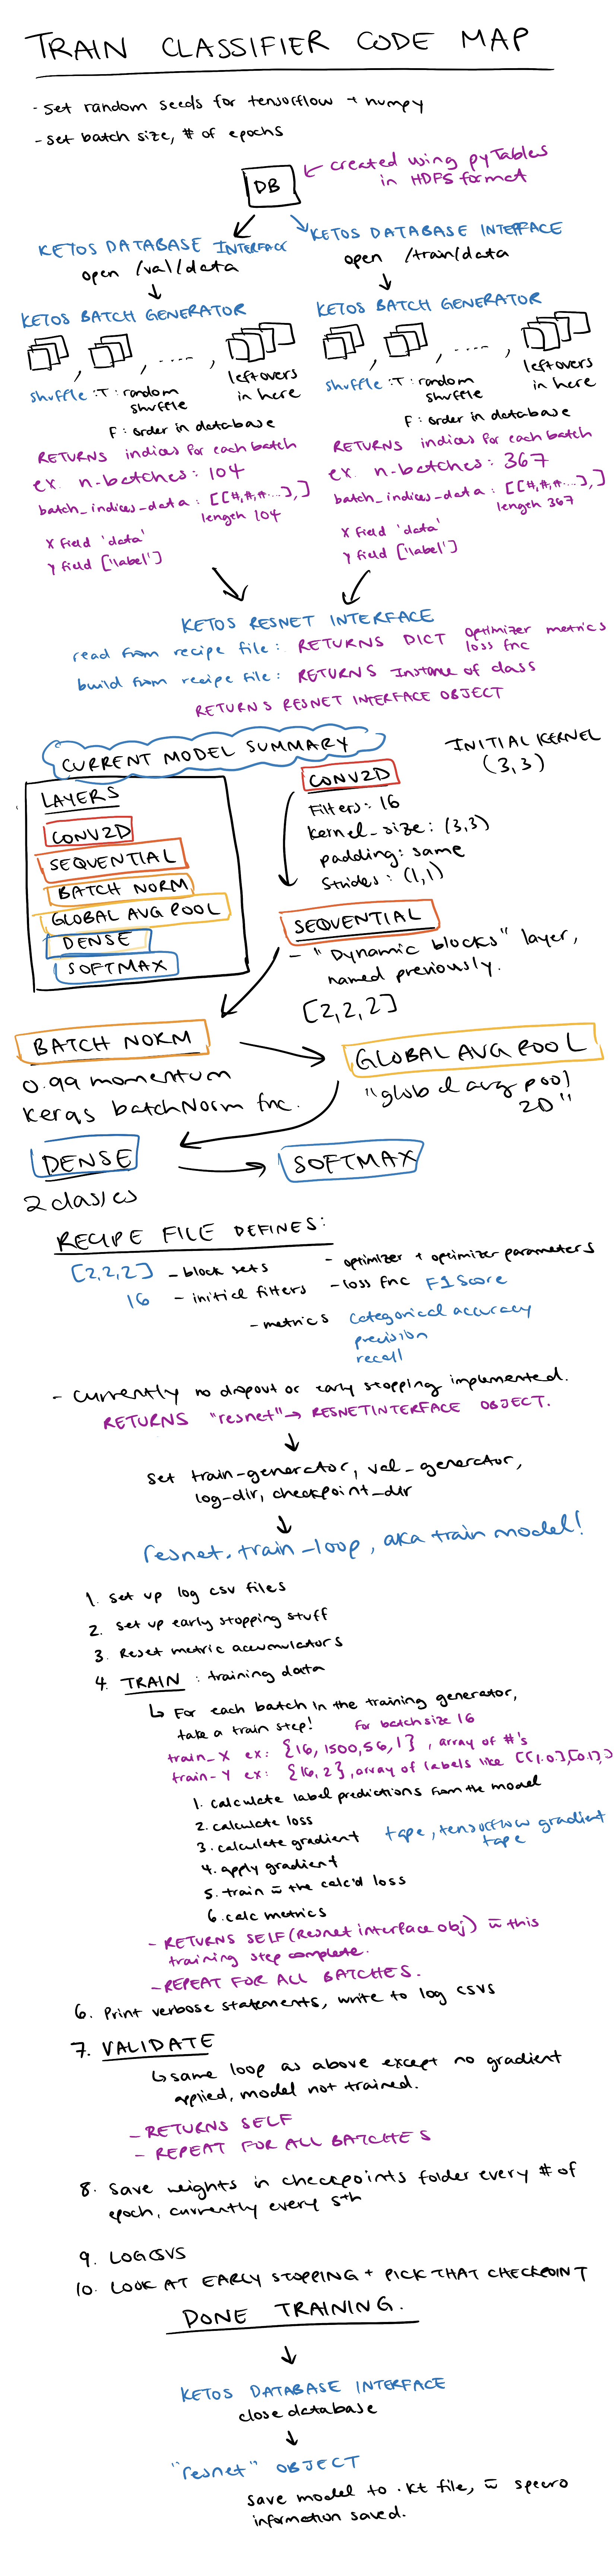 TRAIN CLASSIFIER CODE MAP
- Set random seeds for tensorflow + numpy
- set batch size, # of epochs
DB
created using pyTables
in HDF5 format
KETOS DATABASE INTERFACE
open /val/data
KETOS BATCH GENERATOR
, , ....,
leftovers
in here
shuffle: T: random
shuffle
F: order in database
RETURNS indices for each batch
ex. n-batches: 104
batch_indices_data: [[#,#,#...],]
length 104
X field 'data'
Y field ['label']
KETOS DATABASE INTERFACE
open /train/data
KETOS BATCH GENERATOR
, , ....,
leftovers
in here
shuffle: T: random
shuffle
F: order in database
RETURNS indices for each batch
ex. n-batches: 367
batch_indices_data: [[#,#,#...],]
length 367
X field 'data'
Y field ['label']
KETOS RESNET INTERFACE
read from recipe file: RETURNS DICT optimizer metrics
loss fnc
build from recipe file: RETURNS Instance of class
RETURNS RESNET INTERFACE OBJECT
CURRENT MODEL SUMMARY
LAYERS
CONV2D
SEQUENTIAL
BATCH NORM
GLOBAL AVG POOL
DENSE
SOFTMAX
INITIAL KERNEL
(3,3)
CONV2D
Filters: 16
kernel_size: (3,3)
padding: same
Strides: (1,1)
SEQUENTIAL
- "Dynamic blocks" layer,
named previously.
[2,2,2]
BATCH NORM
0.99 momentum
Keras batchNorm fnc.
GLOBAL AVG POOL
"global avg pool
2D"
DENSE
2 classes
SOFTMAX
RECIPE FILE DEFINES:
[2,2,2] - block sets
16 - initial filters
- optimizer + optimizer parameters
- loss fnc F1Score
- metrics categorical accuracy
precision
recall
- currently no dropout or early stopping implemented.
RETURNS "resnet" → RESNETINTERFACE OBJECT.
set train-generator, val_generator,
log-dir, checkpoint_dir
resnet.train_loop, aka train model!
1. set up log csv files
2. set up early stopping stuff
3. Reset metric accumulators
4. TRAIN : training data
↳ For each batch in the training generator,
take a train step! for batch size 16
train_X ex: {16,1500,56,1}, array of #'s
train-Y ex: {16,2}, array of labels like [[1,0],[0,1],]
1. calculate label predictions from the model
2. calculate loss
3. calculate gradient tape, tensorflow gradient
tape
4. apply gradient
5. train w̄ the calc'd loss
6. calc metrics
- RETURNS SELF (Resnet interface obj) w̄ this
training step complete.
- REPEAT FOR ALL BATCHES.
6. Print verbose statements, write to log csvs
7. VALIDATE
↳ same loop as above except no gradient
applied, model not trained.
- RETURNS SELF
- REPEAT FOR ALL BATCHES
8. Save weights in checkpoints folder every # of
epoch, currently every 5th
9. LOG CSVS
10. LOOK AT EARLY STOPPING + PICK THAT CHECKPOINT
DONE TRAINING.
KETOS DATABASE INTERFACE
close database
"resnet" OBJECT
save model to .kt file, w̄ spectro
information saved.